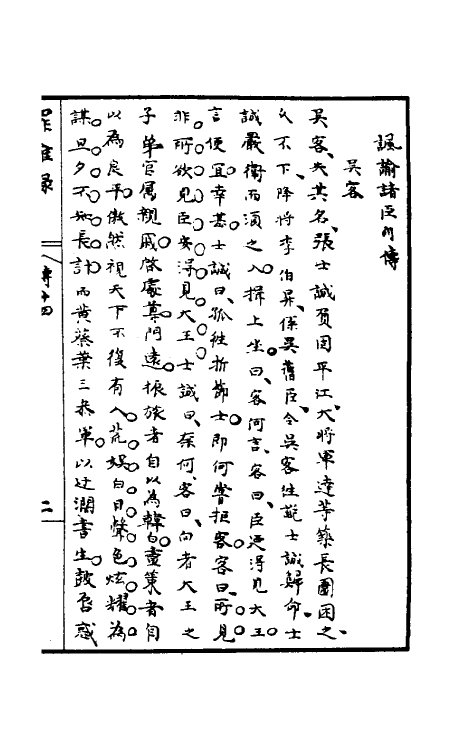 諷諭諸臣列傳
吳客
吳客、失其名、張士誠負固平江、大將軍達等築長圍困之、
久不下、降將李伯昇、係吳舊臣、令吳客往說士誠歸命、士
誠嚴衛而須之入、揖上坐曰、客何言、客曰、臣逆得見大王
言便宜幸甚、士誠曰、孤雖折節士、即何嘗拒客、客曰、所見
非所欲見、臣安得見大王、士誠曰、奈何、客曰、向者大王之
子弟官屬親戚啓處莫門遠、振旅者自以為韓白、畫策者自
以為良平、傲然視天下不復有人、荒娛白日、聲色炫耀、為
謀旦夕、不知長計、而黃蔡葉三參軍、以迂濶書生、鼓舌惑
罪惟錄
傳十四
二